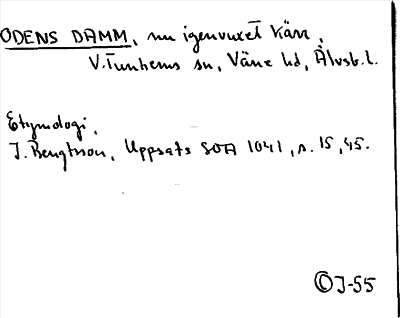 ODENS DAMM, nu igenvuxet kärr,
V. Tunhems sn, Väne hd, Älvsb. l.
Etymologi.
J. Bengtsson, Uppsats SOA 1041, s. 15, 45.
© J-55